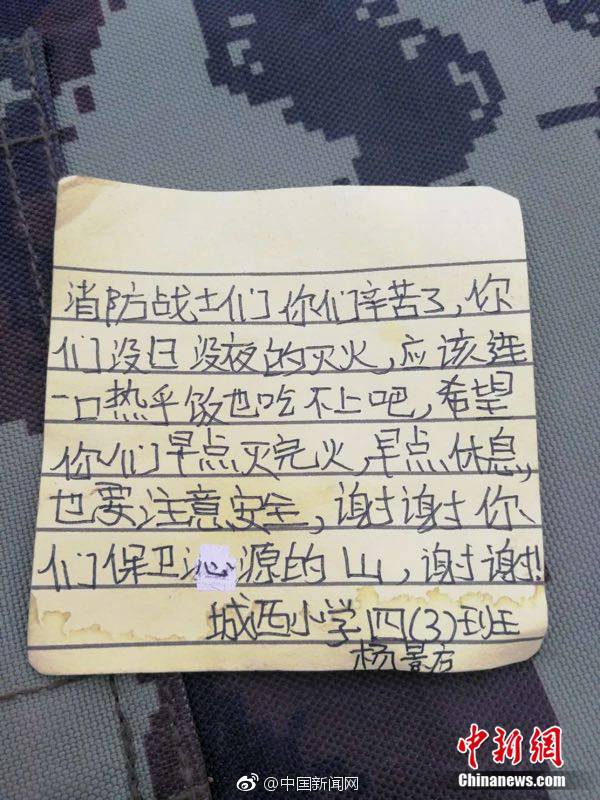 消防战士们你们辛苦了,你
们没日没夜的灭火,应该连
一口热乎饭也吃不上吧,希望
你们早点灭完火,早点休息,
也要注意安全,谢谢你
们保卫沁源的山,谢谢!
城西小学四(3)班
杨景方
中新网
Chinanews.com
@中国新闻网